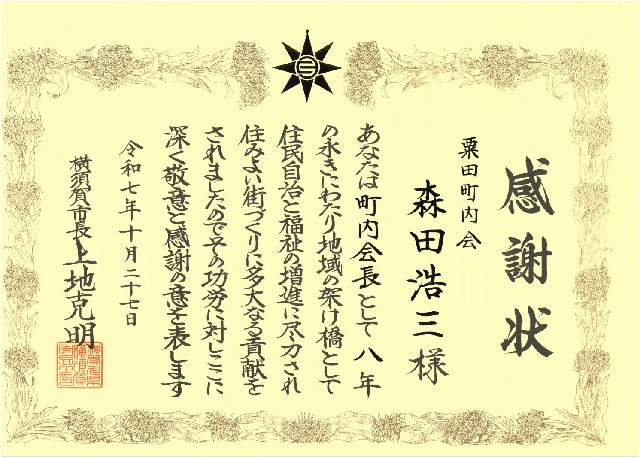 感謝状
粟田町内会
森田浩三様
あなたは町内会長として八年
の永きにわたり地域の架け橋として
住民自治と福祉の増進に尽力され
住みよい街づくりに多大なる貢献を
されましたのでその功労に対しここに
深く敬意と感謝の意を表します
令和七年十月二十七日
横須賀市長上地克明